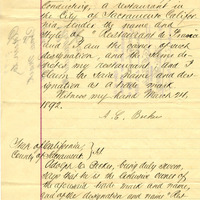 conducting, a restaurant in
the City of Sacramento Califor
nia, under the name and
style of "Restaurant de France
and I am the owner of such
designation, and the same de-
notes my restaurant; and I
claim the said name and des
ignation as a trade mark
Witness my hand March 21.
1892.
State of California
County of Sacramento
Adolph being duly sworn,
says that he is the owner of
the aforesaid trade mark and name,
and of the designation and name "Rest